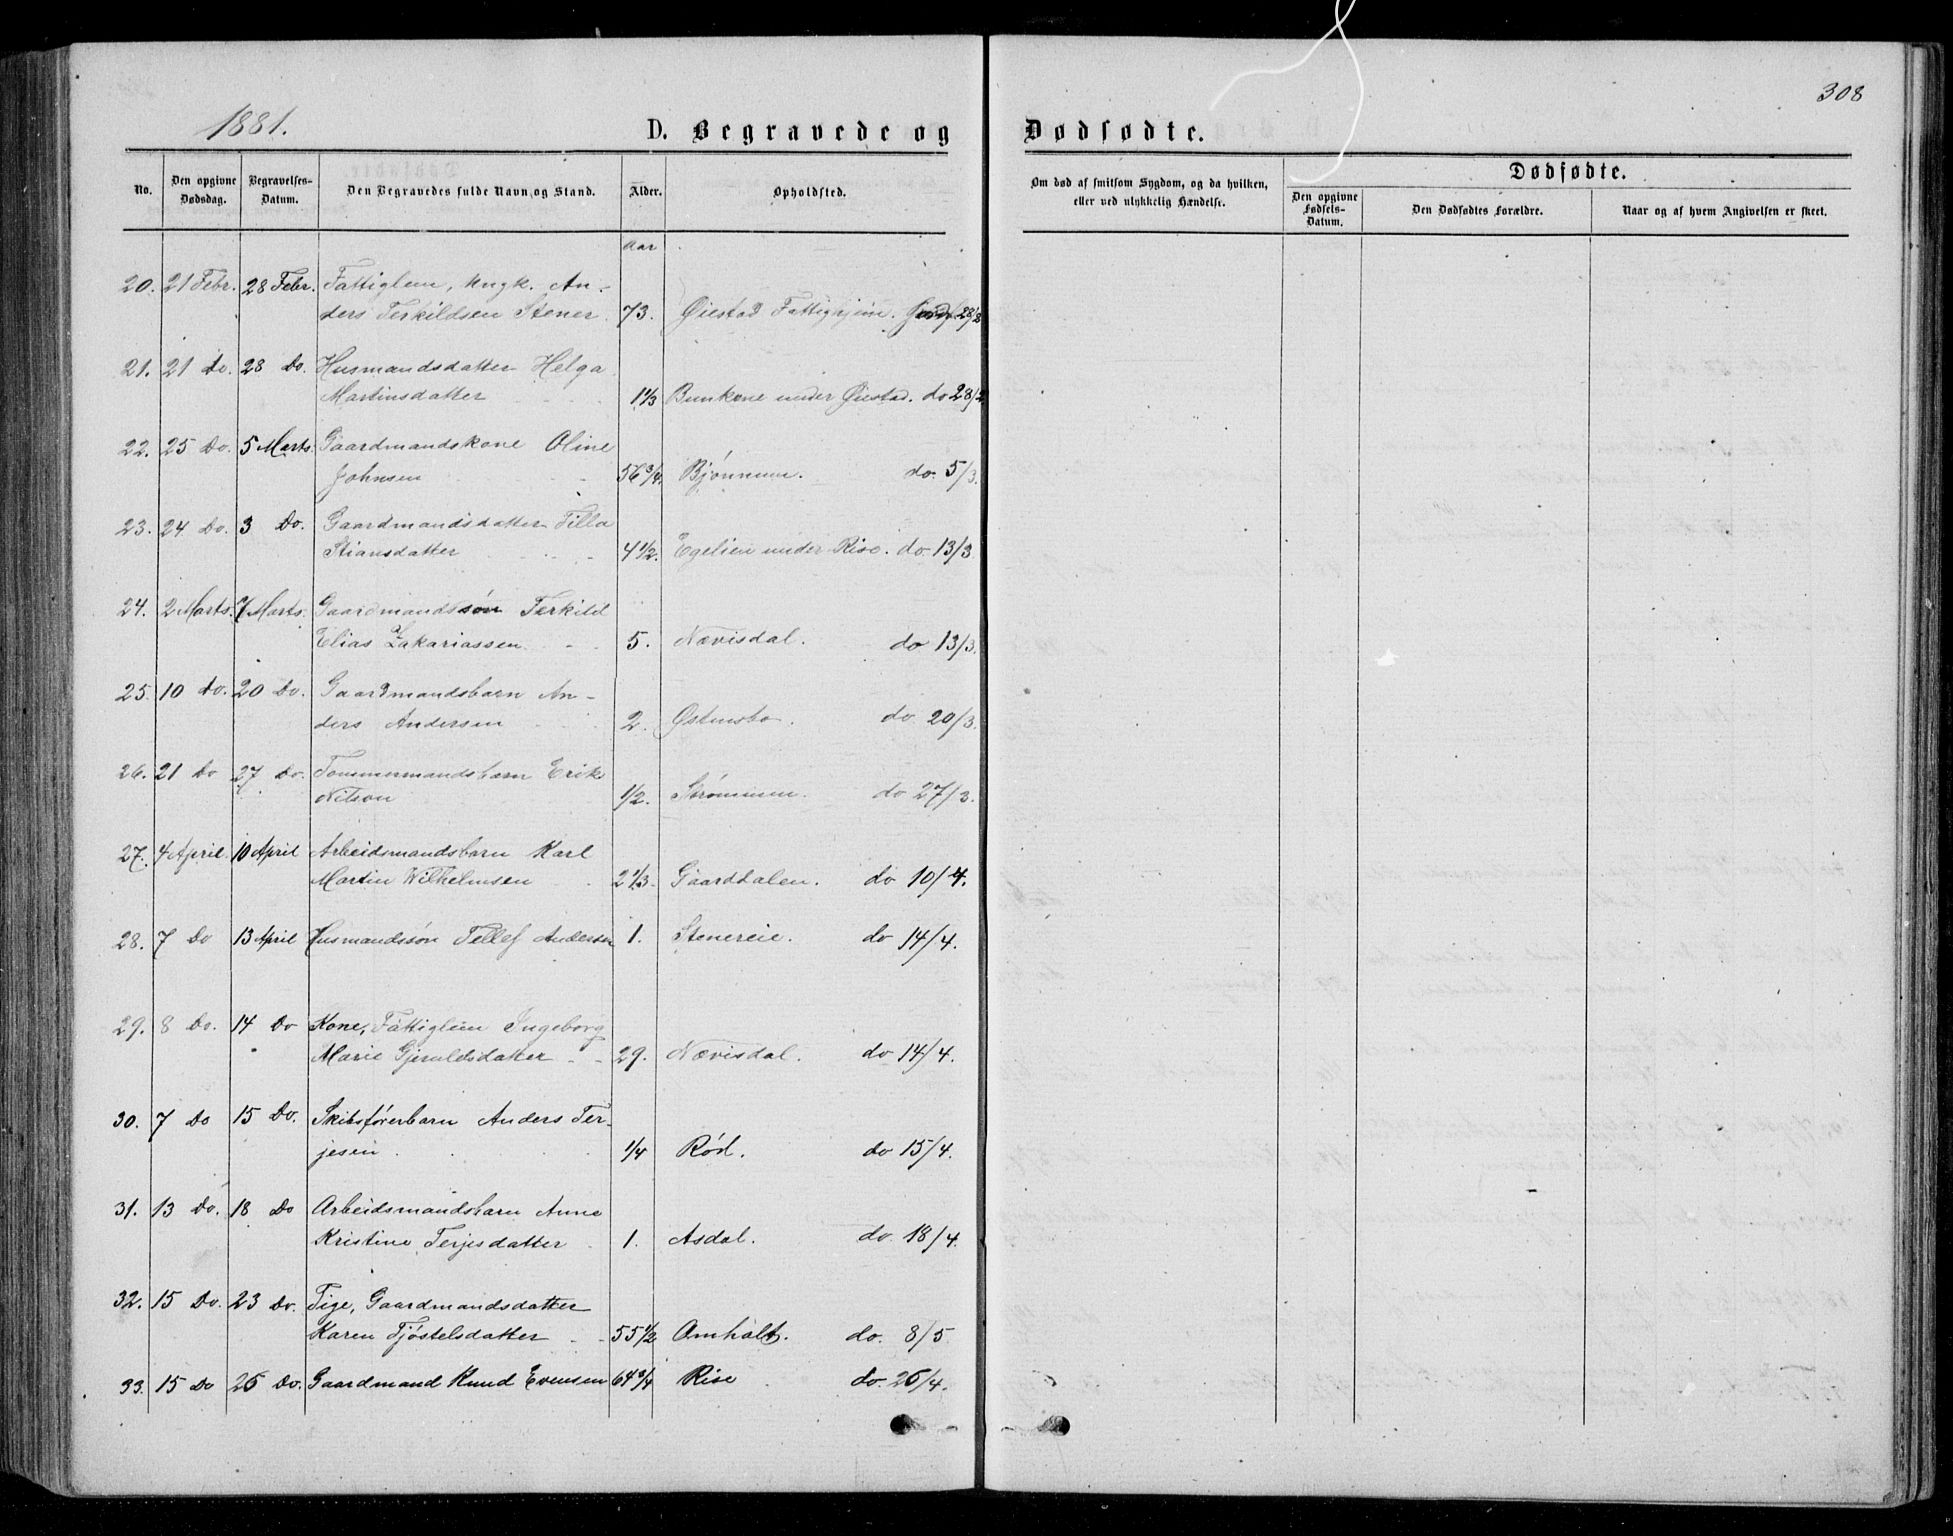 308
1881.
D. Begravede og Dødfødte.
No.
Den opgivne Dødsdag.
Begravelses-Datum.
Den Begravedes fulde Navn og Stand.
Alder.
Opholdsted.
Om død af smitsom Sygdom, og da hvilken, eller ved ulykkelig Hændelse.
Dødfødte.
Den opgivne Fødsels-Datum.
Den Dødfødtes Forældre.
Naar og af hvem Angivelsen er skeet.
Aar
20. 21 Febr. 28 Febr. Fattiglem, Ungk. An-
ders Terkildsen Stener 73. Øiestad Fattighjem. 28/2
21. 21 Do. 28 Do. Husmandsdatter Helga
Martinsdatter 1 1/3 Bunkene under Øiestad. do 28/2
22. 25 Do. 5 Marts. Gaardmandskone Oline
Johnsen 56 3/4. Bjönnum. do. 5/3.
23. 24 Do. 3 Do. Gaardmandsdatter Tilla
Stiansdatter 4 1/2. Egelien under Rise. do 13/3
24. 2 Marts. 7 Marts. Gaardmandssön Terkild
Elias Zakariassen 5. Nævisdal. do 13/3.
25. 10 Do. 20 Do. Gaardmandsbarn An-
ders Andersen 2. Østensbo. do 20/3.
26. 21 Do 27 Do. Tømmermandsbarn Erik
Nilson 1/2. Strømmen. do 27/3.
27. 4 April. 10 April Arbeidsmandsbarn Karl
Martin Wilhelmsen 2 1/3. Gaarddalen. do 10/4.
28. 7 Do 13 April Husmandssön Tellef Andersen 1. Stenereie. do 14/4.
29. 8 Do. 14 Do Kone, Fattiglem Ingeborg
Marie Gjeruldsdatter 29. Nævisdal. do 14/4.
30. 7 Do 15 Do. Skibsförerbarn Anders Ter-
jesen 1/4 Rød. do 15/4.
31. 13 Do. 18 Do Arbeidsmandsbarn Anne
Kristine Terjesdatter 1. Asdal. do 18/4.
32. 15 Do. 23 Do. Pige, Gaardmandsdatter
Karen Tjöstelsdatter 55 1/2 Omholt. do. 8/5
33. 15 Do 26 Do. Gaardmand Knud Evensen 64 3/4 Rise do. 26/4.